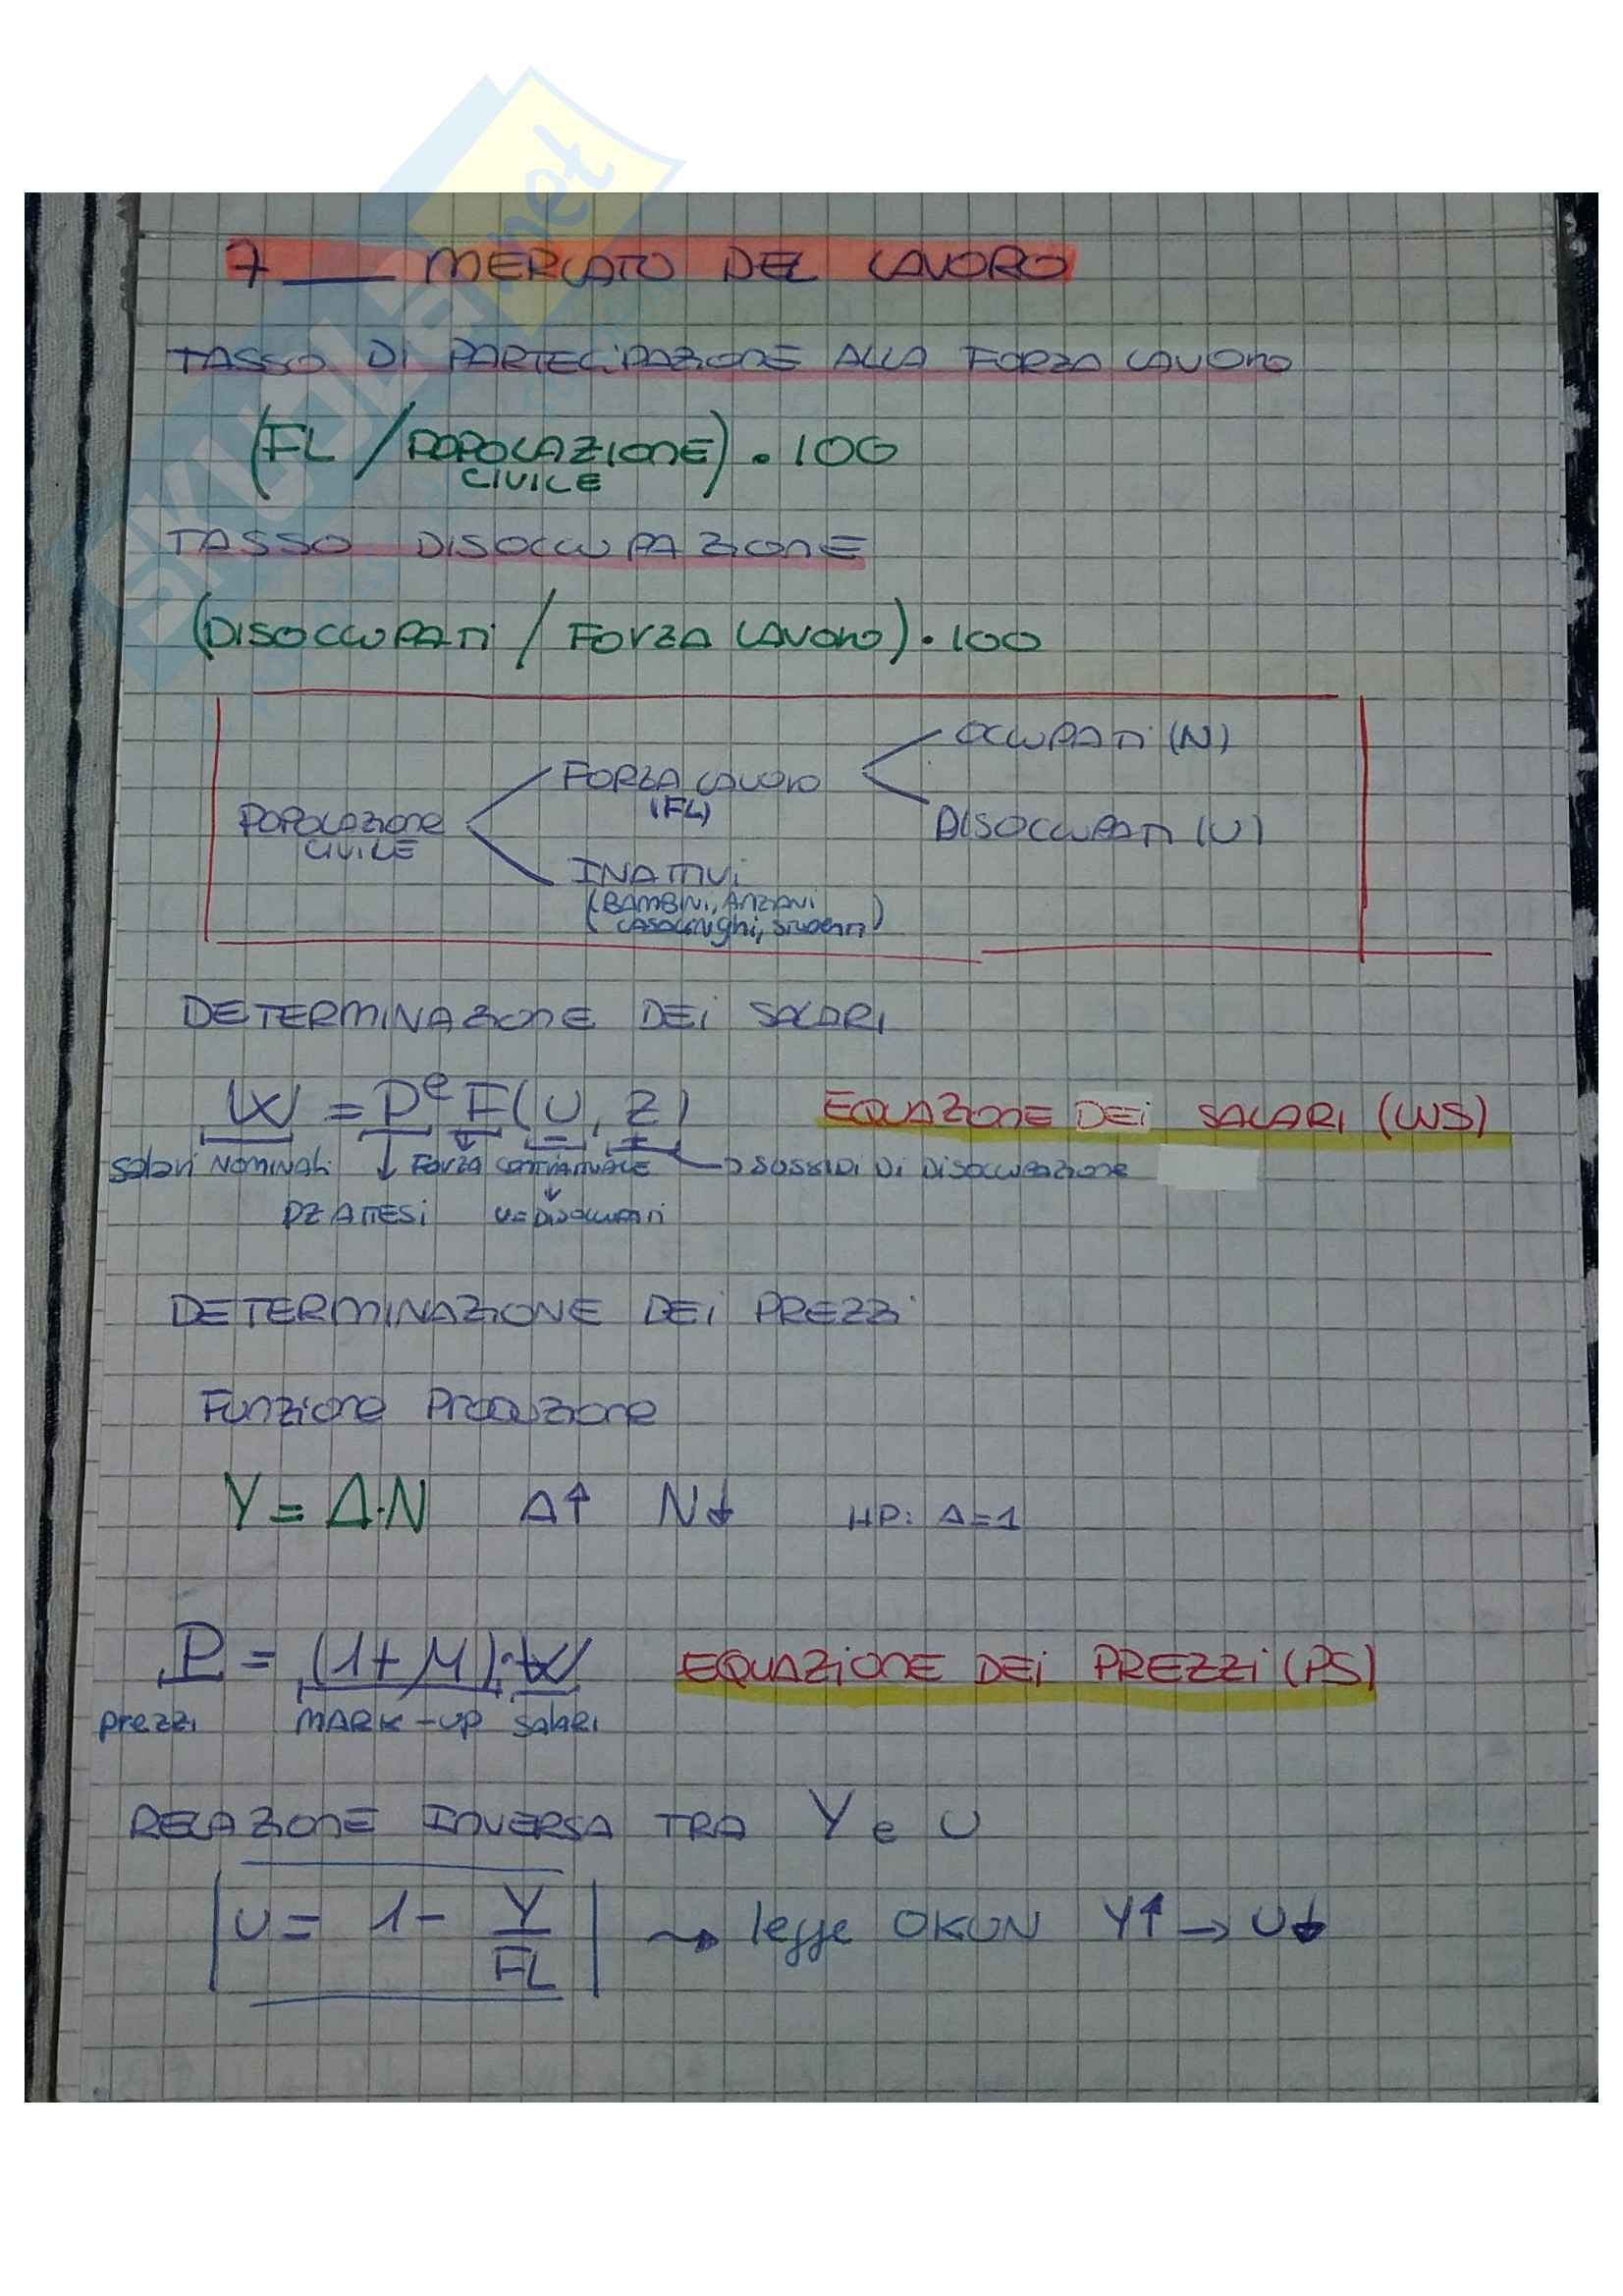 SKUOLA.net
7 ___ MERCATO DEL LAVORO
TASSO DI PARTECIPAZIONE ALLA FORZA LAVORO
(FL / POPOLAZIONE CIVILE) . 100
TASSO DISOCCUPAZIONE
(DISOCCUPATI / FORZA LAVORO) . 100
OCCUPATI (N)
FORZA LAVORO
(FL)
POPOLAZIONE
CIVILE
DISOCCUPATI (U)
INATTIVI
(BAMBINI, ANZIANI
CASALINGHI, STUDENTI)
DETERMINAZIONE DEI SALARI
W = Pᵉ F(U, Z) EQUAZIONE DEI SALARI (WS)
- +
salari NOMINALI ↓ FORZA CONTRATTUALE → SUSSIDI DI DISOCCUPAZIONE
PZ ATTESI U= DISOCCUPATI
DETERMINAZIONE DEI PREZZI
FUNZIONE PRODUZIONE
Y = A·N A↑ N↓ HP: A=1
P = (1+M)·W EQUAZIONE DEI PREZZI (PS)
prezzi MARK-UP salari
RELAZIONE INVERSA TRA Y e U
U = 1 - Y/FL → legge OKUN Y↑ → U↓